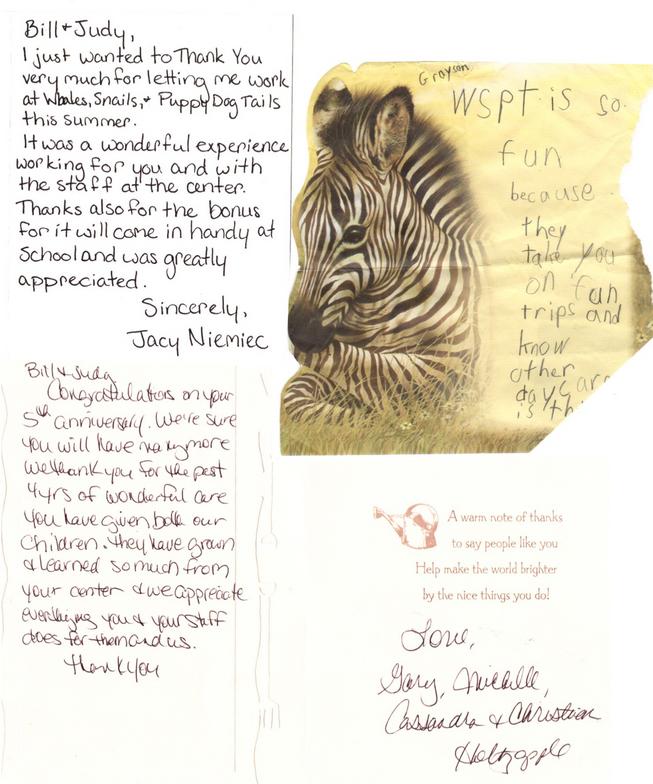 Bill + Judy,
I just wanted to Thank You
very much for letting me work
at Whales, Snails, + Puppy Dog Tails
this summer.
It was a wonderful experience
working for you and with
the staff at the center.
Thanks also for the bonus
for it will come in handy at
School and was greatly
appreciated.
Sincerely,
Jacy Niemiec
Grayson
WSPT is so
fun
because
they
take you
on fun
trips and
know
other
daycare
is thi
Bill + Judy
Congratulations on your
5th anniversary. We're sure
you will have many more
We thank you for the past
4 yrs of wonderful care
you have given both our
Children. They have grown
& learned so much from
your center & we appreciate
everything you & your staff
does for them and us.
Thank you
A warm note of thanks
to say people like you
Help make the world brighter
by the nice things you do!
Love,
Gary, Michelle,
Cassandra & Christian
Holtzapple